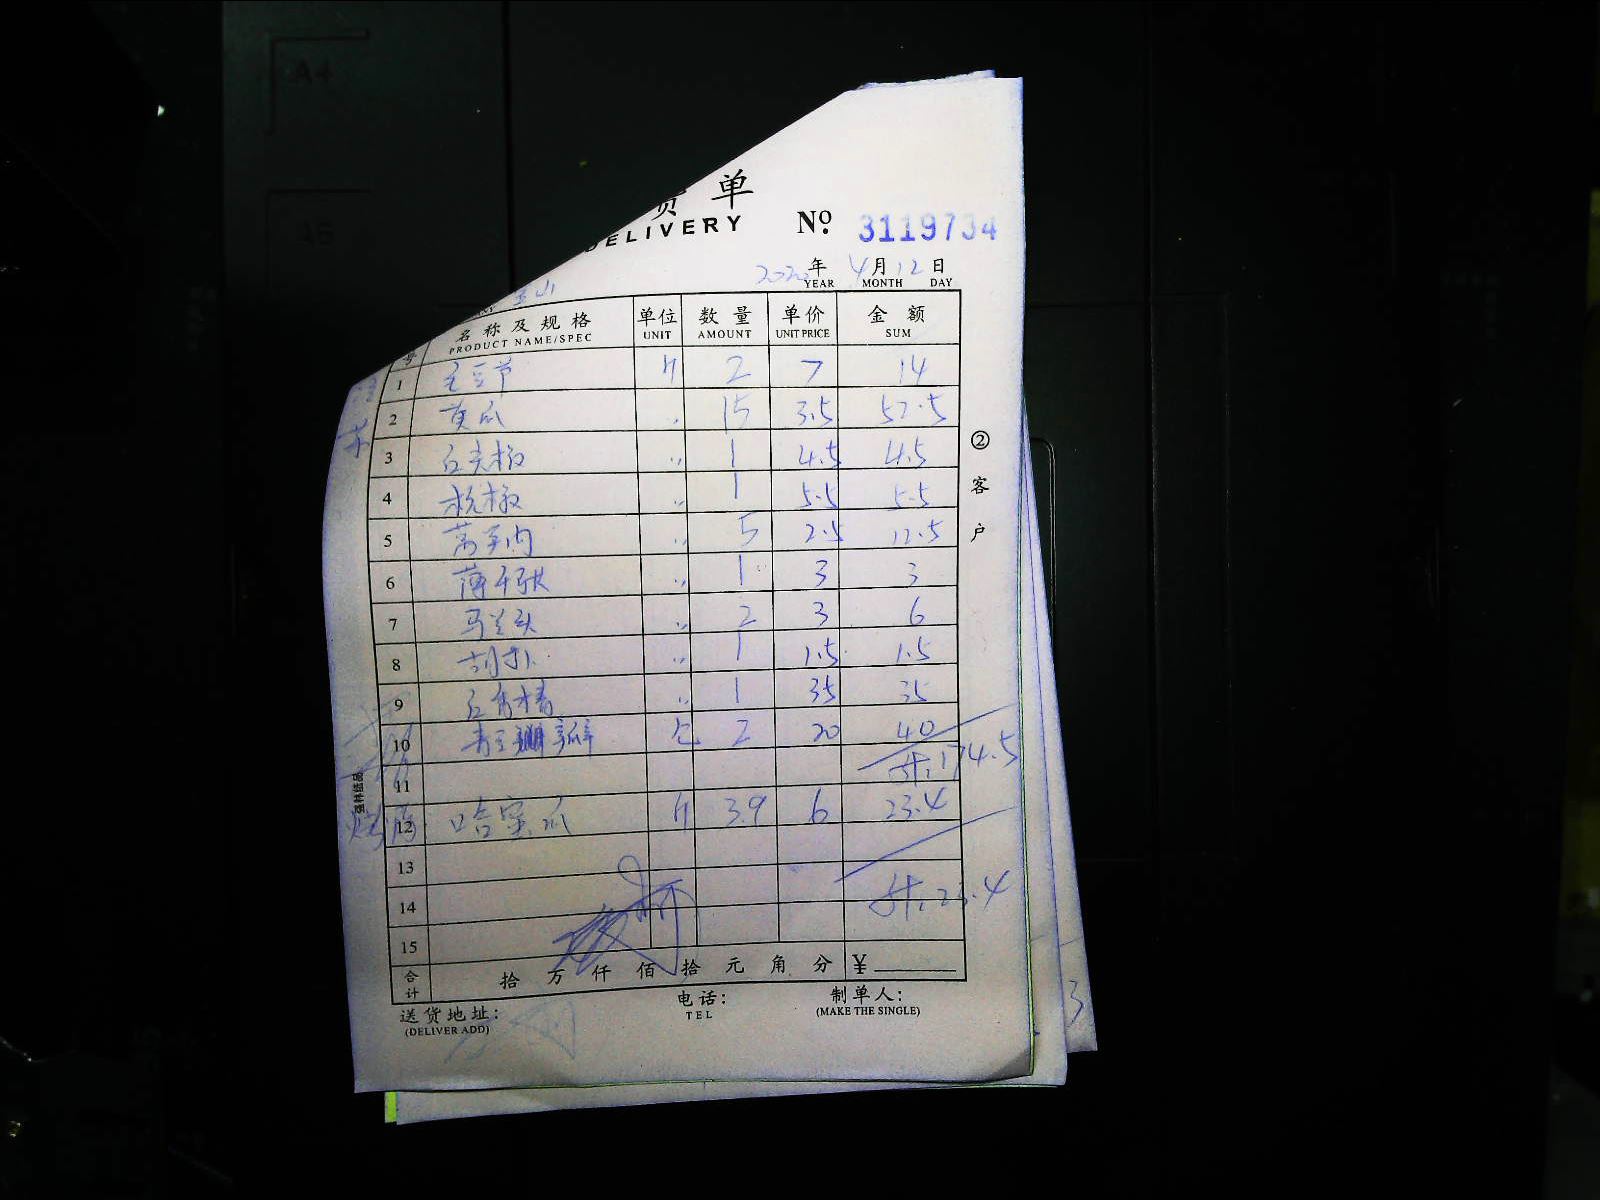 货单
DELIVERY No. 3119734
2020年 4月12日
YEAR MONTH DAY
玉山
号 名称及规格 单位 数量 单价 金额
PRODUCT NAME/SPEC UNIT AMOUNT UNIT PRICE SUM
1 毛豆节 斤 2 7 14
2 黄瓜 〃 15 3.5 52.5
3 红尖椒 〃 1 4.5 4.5
4 杭椒 〃 1 5.5 5.5
5 莴笋肉 〃 5 2.5 12.5
6 1 3 3
7 马兰头 〃 2 3 6
8 胡卜 〃 1 1.5 1.5
9 〃 1 35 35
10 青豆瓣 包 2 20 40
11 计:174.5
12 哈密瓜 斤 3.9 6 23.4
13
14 计:23.4
15
合计 拾 万 仟 佰 拾 元 角 分 ¥
送货地址: 电话: 制单人:
(DELIVER ADD) TEL (MAKE THE SINGLE)
②客户
强林纸品
A4
A5
3